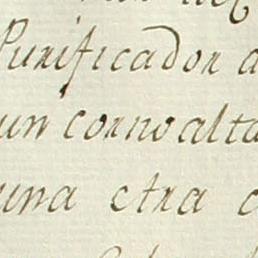 Purificador
un cornoalta
una etra